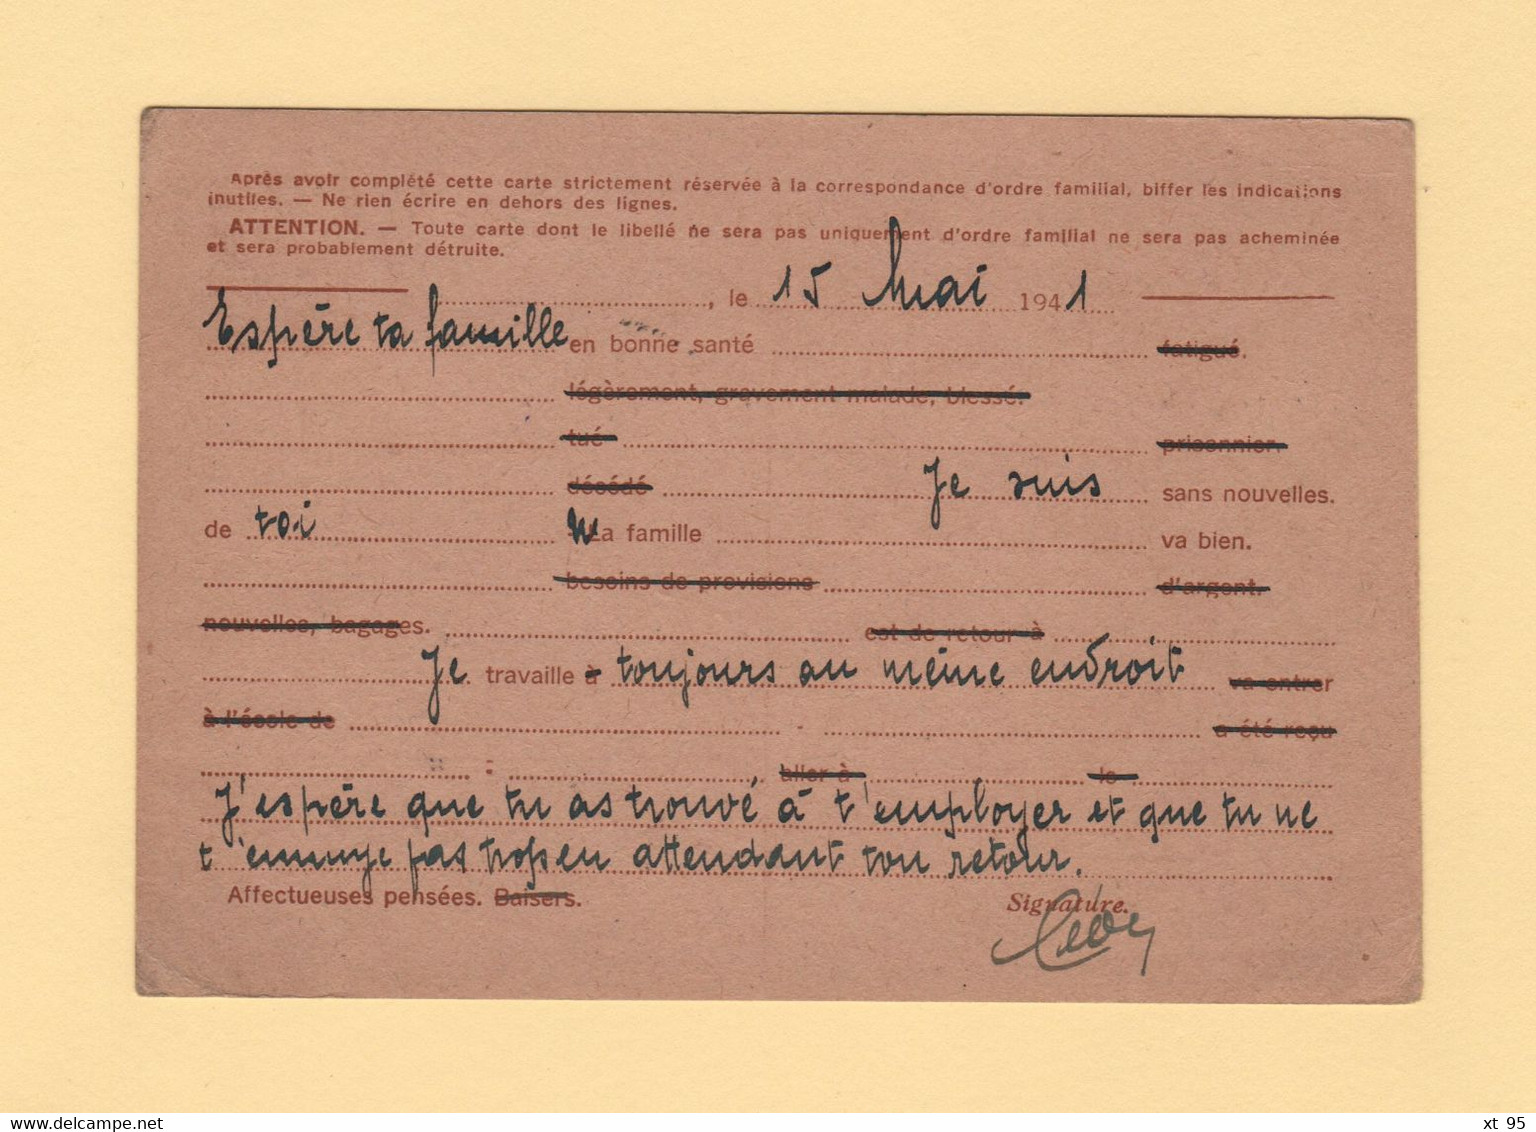 Après avoir complété cette carte strictement réservée à la correspondance d'ordre familial, biffer les indications
inutiles. — Ne rien écrire en dehors des lignes.
ATTENTION. — Toute carte dont le libellé ne sera pas uniquement d'ordre familial ne sera pas acheminée
et sera probablement détruite.
, le 15 Mai 1941
Espère ta famille en bonne santé fatigué.
légèrement, gravement malade, blessé.
tué prisonnier.
décédé Je suis sans nouvelles.
de toi La famille va bien.
besoins de provisions d'argent.
nouvelles, bagages. est de retour à
Je travaille à toujours au même endroit va entrer
à l'école de a été reçu
aller à le
J'espère que tu as trouvé à t'employer et que tu ne
t'ennuye pas trop en attendant ton retour.
Affectueuses pensées. Baisers. Signature.
xt 95
Delcampe.net